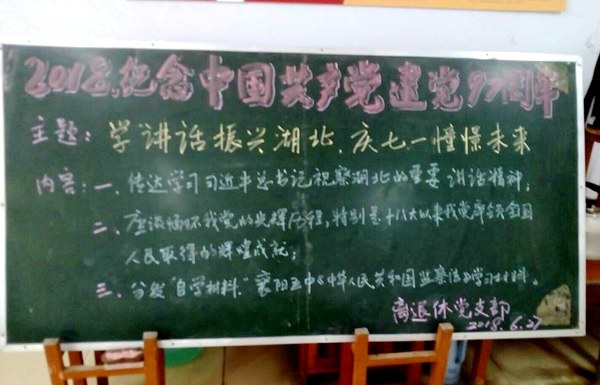 2018年纪念中国共产党建党97周年
主题：学讲话振兴湖北、庆七一憧憬未来
内容：一、传达学习习近平总书记视察湖北的重要讲话精神；
二、座谈缅怀我党的光辉历程，特别是十八大以来我党率领全国
人民取得的辉煌成就；
三、分发"自学材料"襄阳五中《中华人民共和国监察法》学习材料。
离退休党支部
2018.6.27